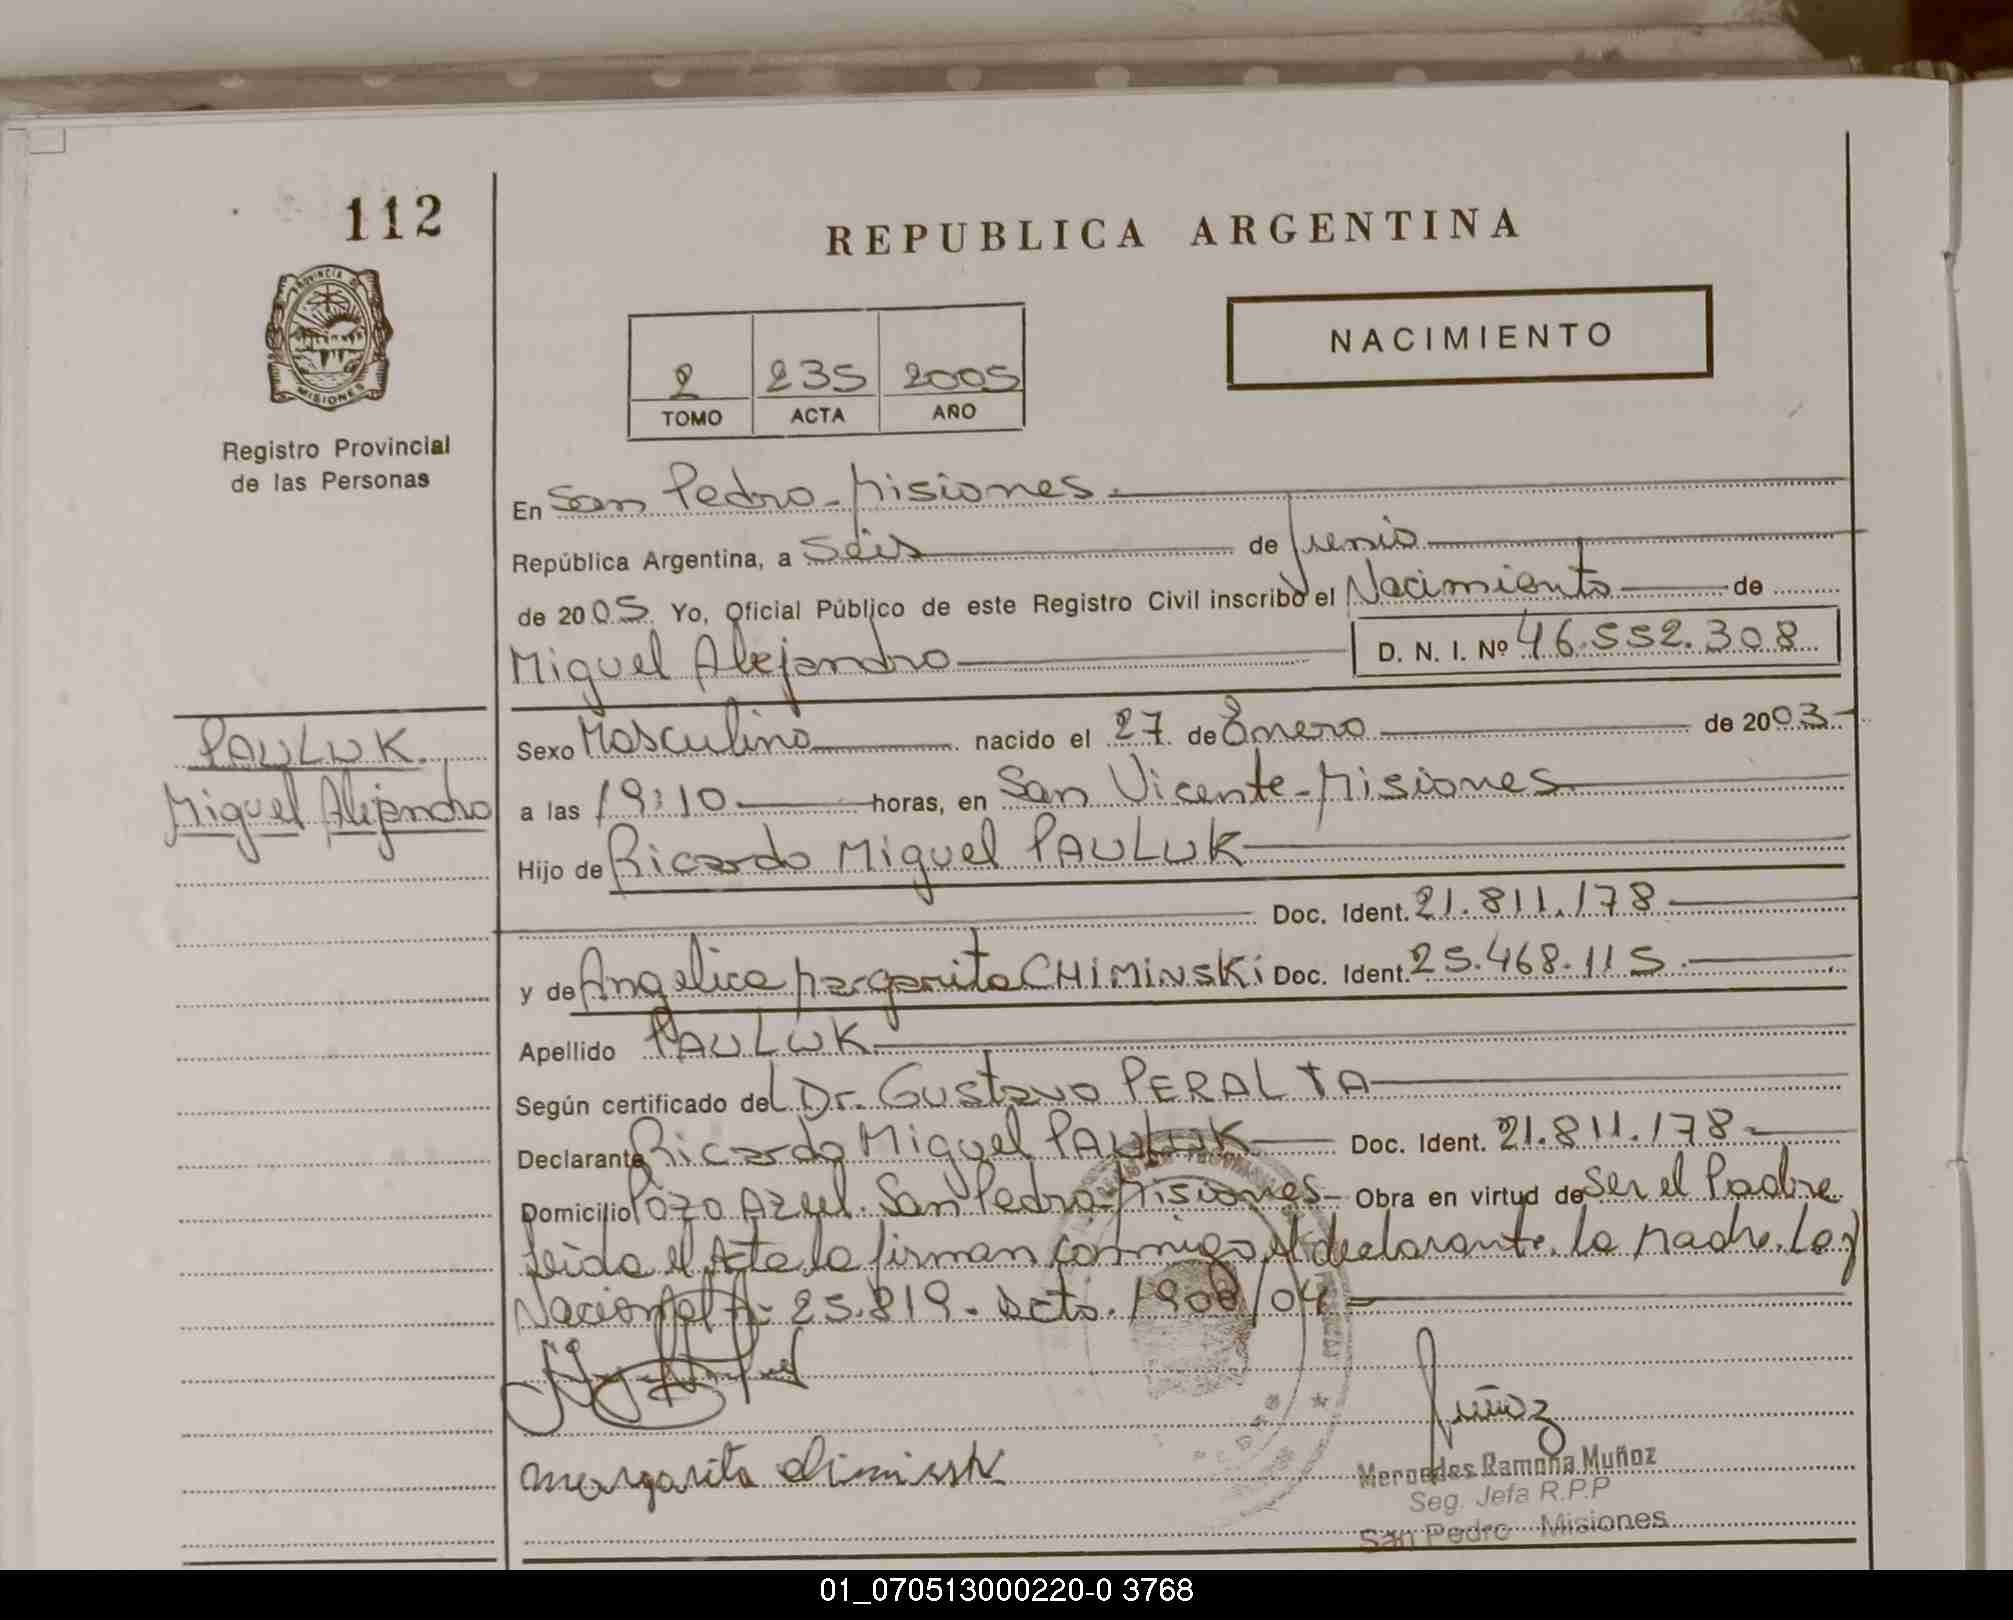 112
PROVINCIA DE
MISIONES
Registro Provincial
de las Personas
REPUBLICA ARGENTINA
NACIMIENTO
2 235 2005
TOMO ACTA AÑO
En San Pedro - Misiones.
República Argentina, a Seis de Junio
de 2005 Yo, Oficial Público de este Registro Civil inscribo el Nacimiento de
Miguel Alejandro D. N. I. Nº 46.552.308
PAULUK
Miguel Alejandro
Sexo Masculino nacido el 27 de Enero de 2003
a las 19:10 horas, en San Vicente - Misiones
Hijo de Ricardo Miguel PAULUK
Doc. Ident. 21.811.178
y de Angelica Margarita CHIMINSKi Doc. Ident. 25.468.115
Apellido PAULUK
Según certificado del Dr. Gustavo PERALTA
Declarante Ricardo Miguel PAULUK Doc. Ident. 21.811.178
Domicilio Pozo Azul. San Pedro Misiones Obra en virtud de Ser el Padre
Leida el Acta la firman conmigo el declarante. la Madre. Ley
Nacional Nº 25.819. Dcto. 1908/04
margarita
Muñoz
Mercedes Ramona Muñoz
Seg. Jefa R.P.P
San Pedro Misiones
01_070513000220-0 3768